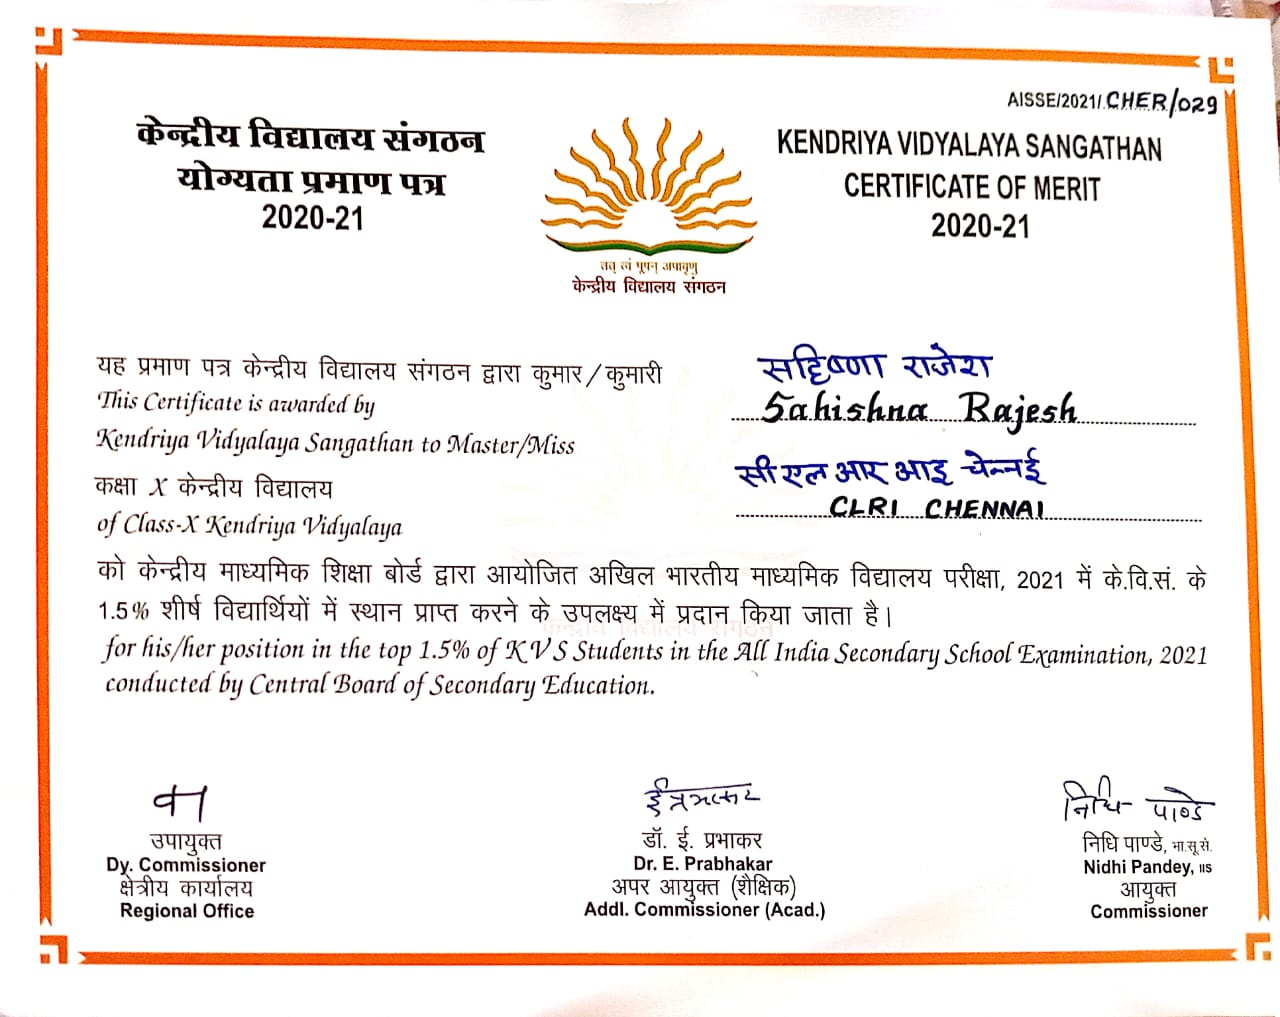 AISSE/2021/.CHER/029
केन्द्रीय विद्यालय संगठन
योग्यता प्रमाण पत्र
2020-21
तत् त्वं पूषन् अपावृणु
केन्द्रीय विद्यालय संगठन
KENDRIYA VIDYALAYA SANGATHAN
CERTIFICATE OF MERIT
2020-21
यह प्रमाण पत्र केन्द्रीय विद्यालय संगठन द्वारा कुमार/कुमारी सहिष्णा राजेश
This Certificate is awarded by
Kendriya Vidyalaya Sangathan to Master/Miss Sahishna Rajesh
कक्षा X केन्द्रीय विद्यालय सी एल आर आइ चेन्नई
of Class-X Kendriya Vidyalaya CLRI CHENNAI
को केन्द्रीय माध्यमिक शिक्षा बोर्ड द्वारा आयोजित अखिल भारतीय माध्यमिक विद्यालय परीक्षा, 2021 में के.वि.सं. के
1.5% शीर्ष विद्यार्थियों में स्थान प्राप्त करने के उपलक्ष्य में प्रदान किया जाता है।
for his/her position in the top 1.5% of KVS Students in the All India Secondary School Examination, 2021
conducted by Central Board of Secondary Education.
उपायुक्त
Dy. Commissioner
क्षेत्रीय कार्यालय
Regional Office
डॉ. ई. प्रभाकर
Dr. E. Prabhakar
अपर आयुक्त (शैक्षिक)
Addl. Commissioner (Acad.)
निधि पाण्डे
निधि पाण्डे, भा.सू.से.
Nidhi Pandey, IIS
आयुक्त
Commissioner